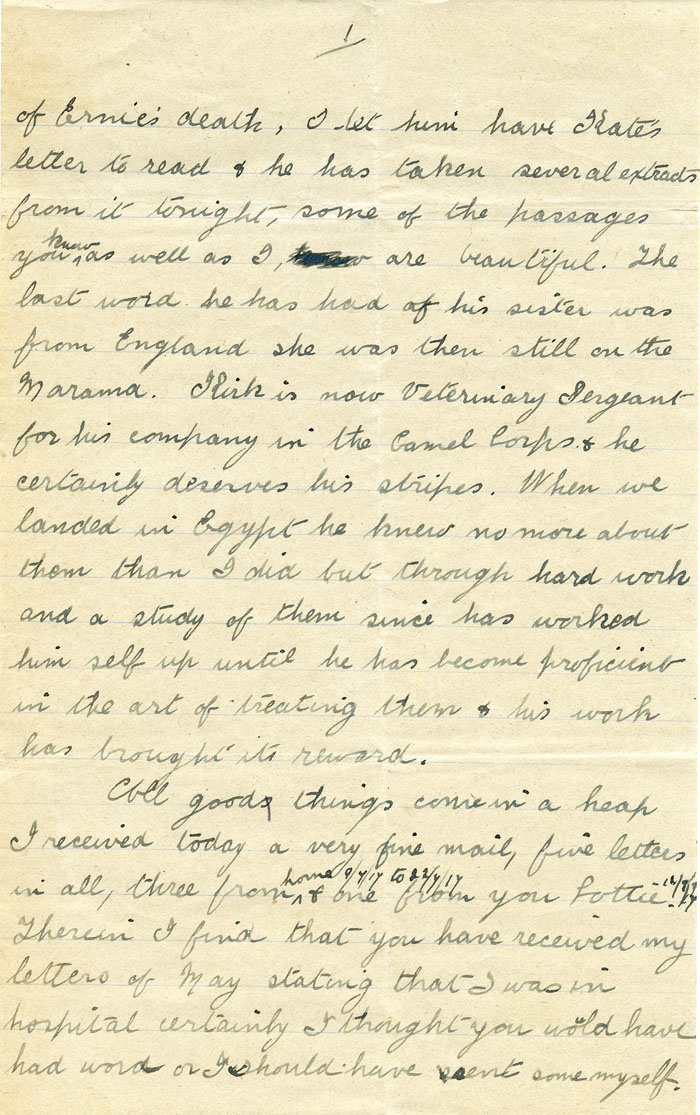 1
of Ernie's death, I let him have Kate's
letter to read & he has taken several extracts
from it tonight, some of the passages
you know as well as I, are beautiful. The
last word he has had of his sister was
from England she was then still on the
Marama. Kirk is now Veterinary Sergeant
for his company in the Camel Corps. & he
certainly deserves his stripes. When we
landed in Egypt he knew no more about
them than I did but through hard work
and a study of them since has worked
him self up until he has become proficient
in the art of treating them & his work
has brought its reward.
All good things come in a heap
I received today a very fine mail, five letters
home 9/7/17 to 22/7/17
in all, three from & one from you Lottie!
Therein I find that you have received my
letters of May stating that I was in
hospital certainly I thought you would have
had word or I should have sent some myself.